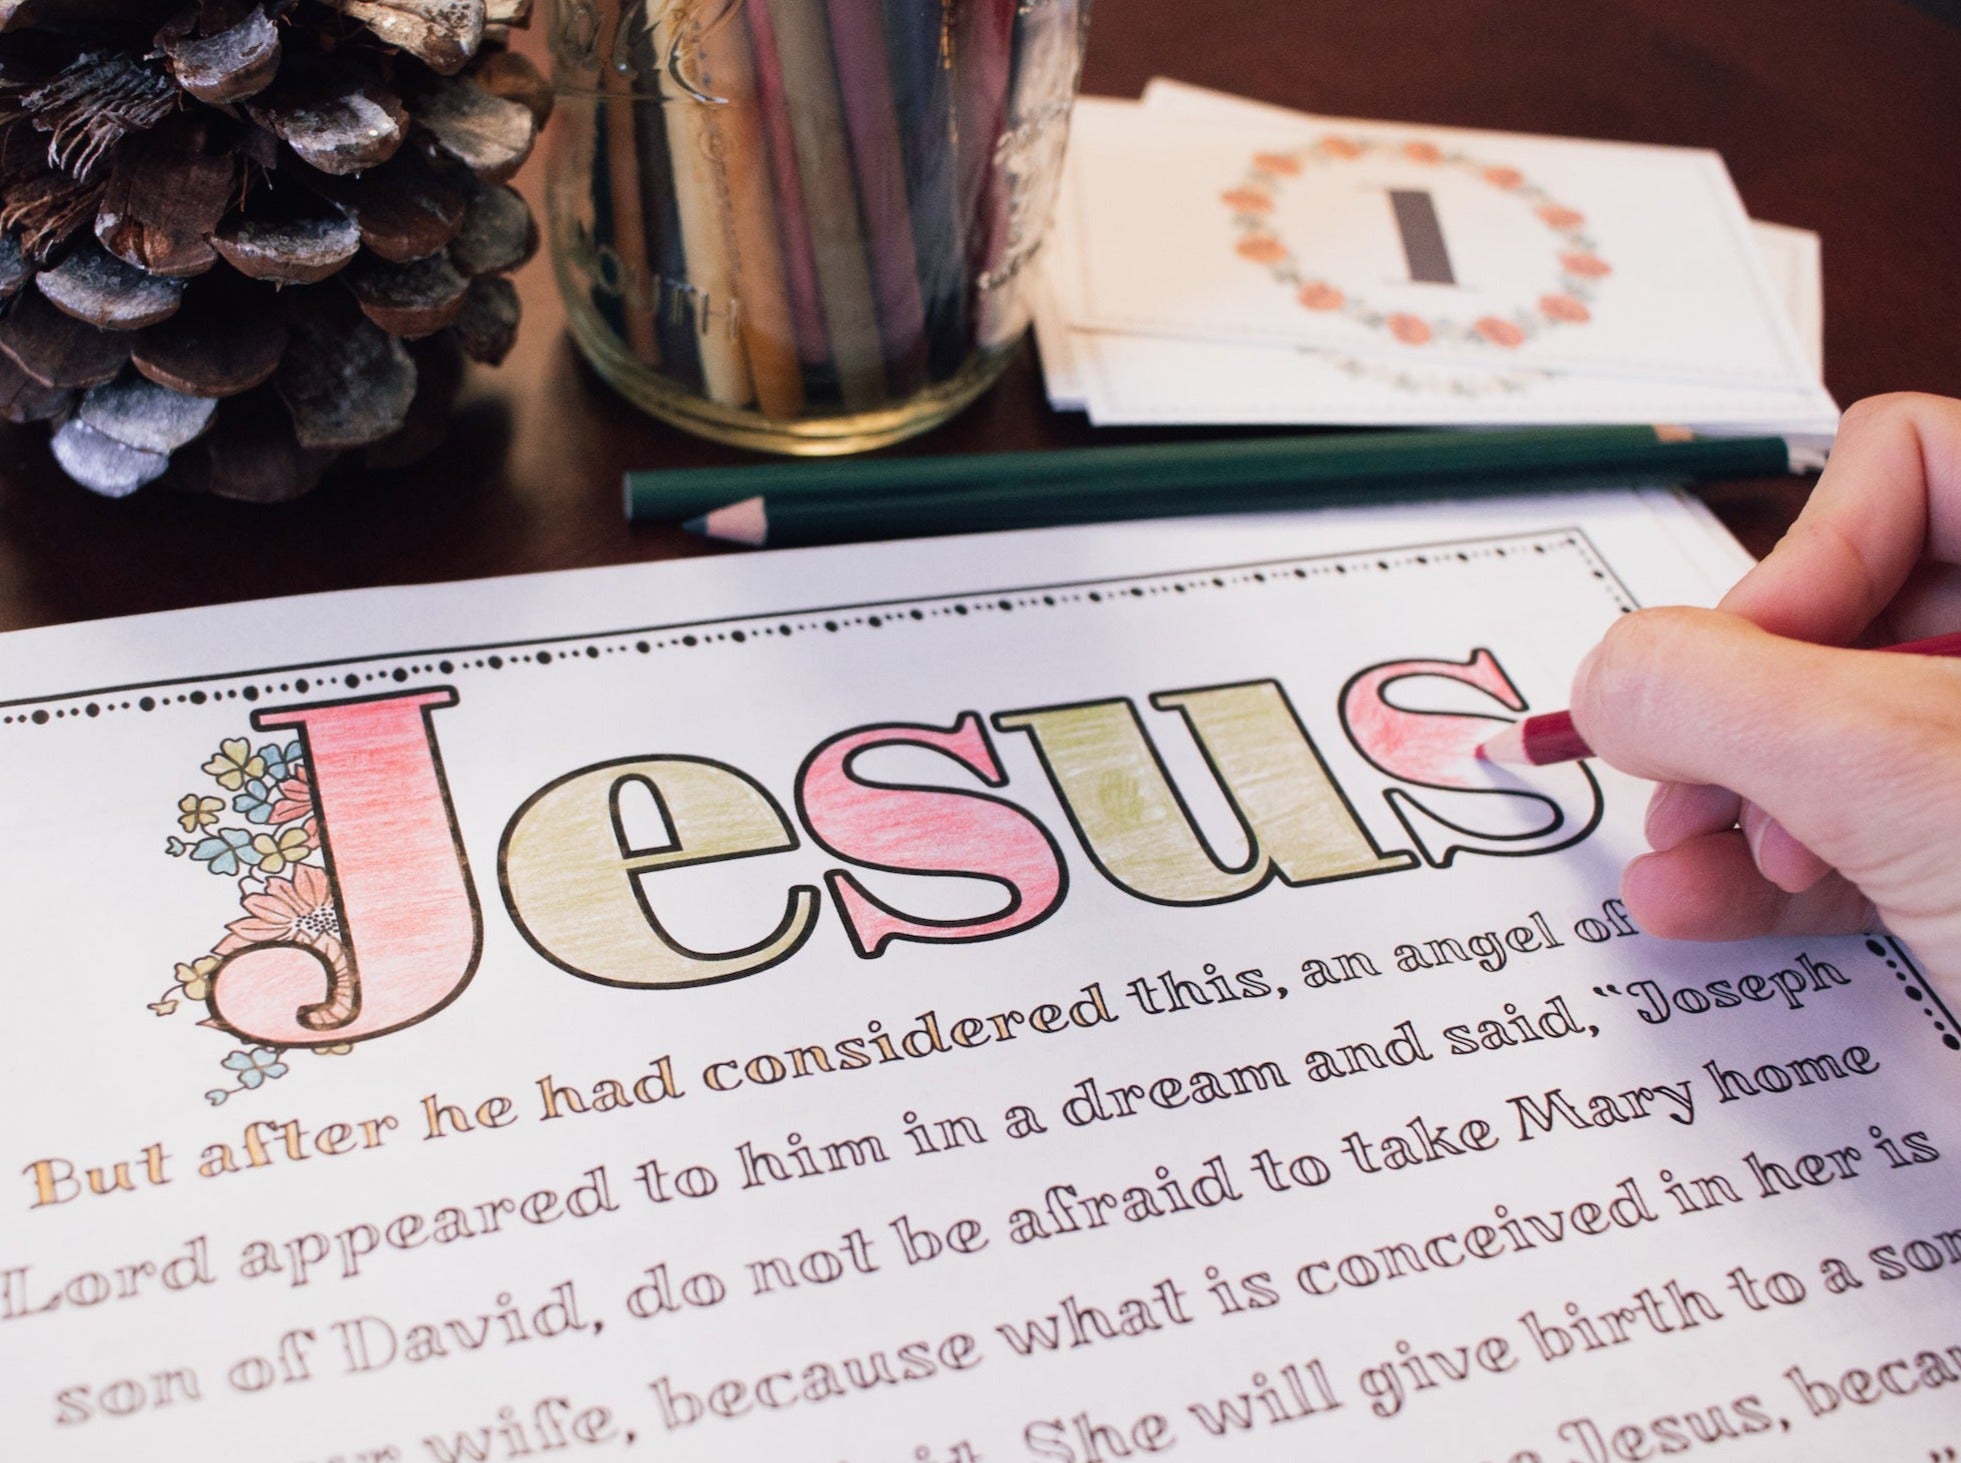 OUTH
1
Jesus
But after he had considered this, an angel of
Lord appeared to him in a dream and said, “Joseph
son of David, do not be afraid to take Mary home
wife, because what is conceived in her is
She will give birth to a son
Jesus,